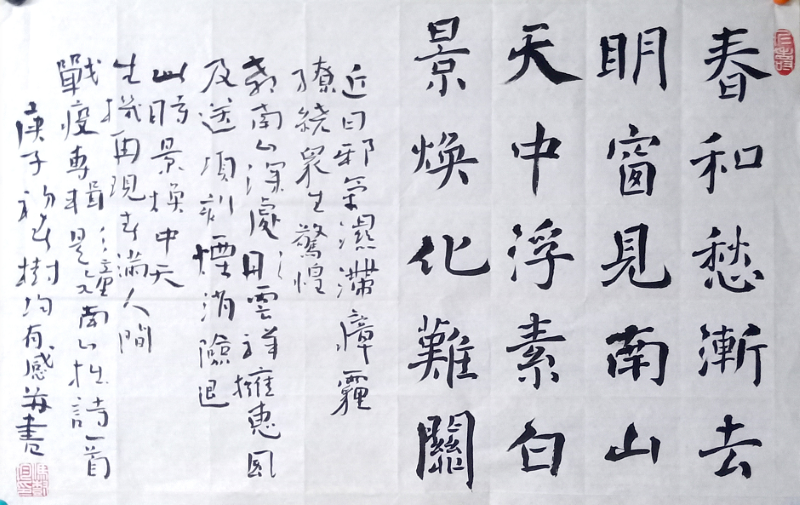 春和愁漸去
明窗見南山
天中浮素白
景煥化難關
近日邪氣濕滯瘴霾
繚繞眾生驚惶
南山深處日雲祥擁惠風
及送頃刻煙消險退
此時景煥中天
生機再現春滿人間
戰疫專輯之南山拙詩一首
庚子初春樹均有感并書